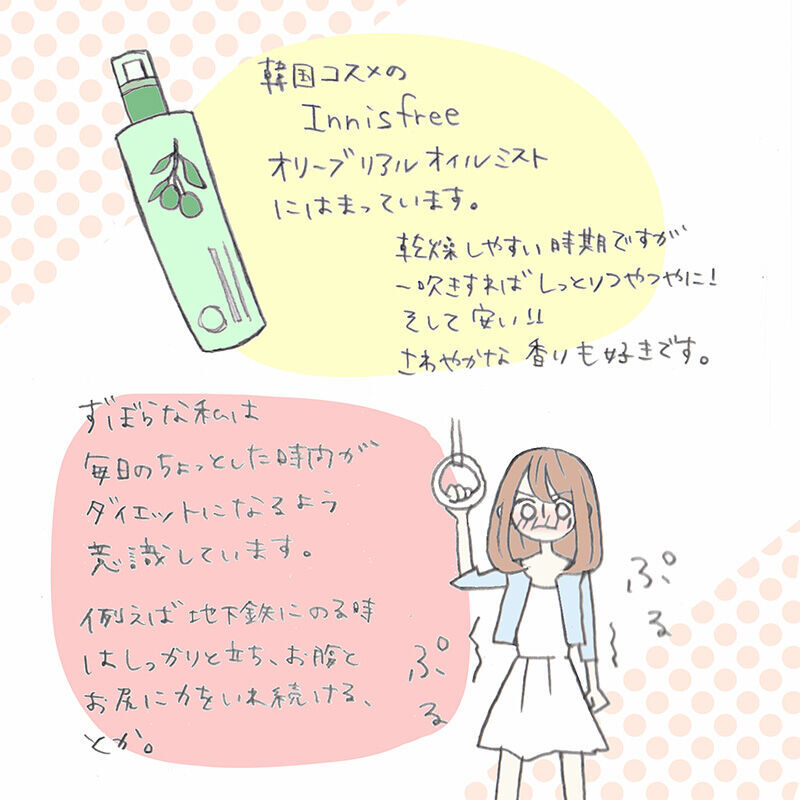 韓国コスメの
Innisfree
オリーブリアルオイルミスト
にはまっています。
乾燥しやすい時期ですが
一吹きすればしっとりつやつやに!
そして安い!!
さわやかな香りも好きです。
ずぼらな私は
毎日のちょっとした時間が
ダイエットになるよう
意識しています。
例えば地下鉄にのる時
はしっかりと立ち、お腹と
お尻に力をいれ続ける、
とか。
ぷる
ぷる